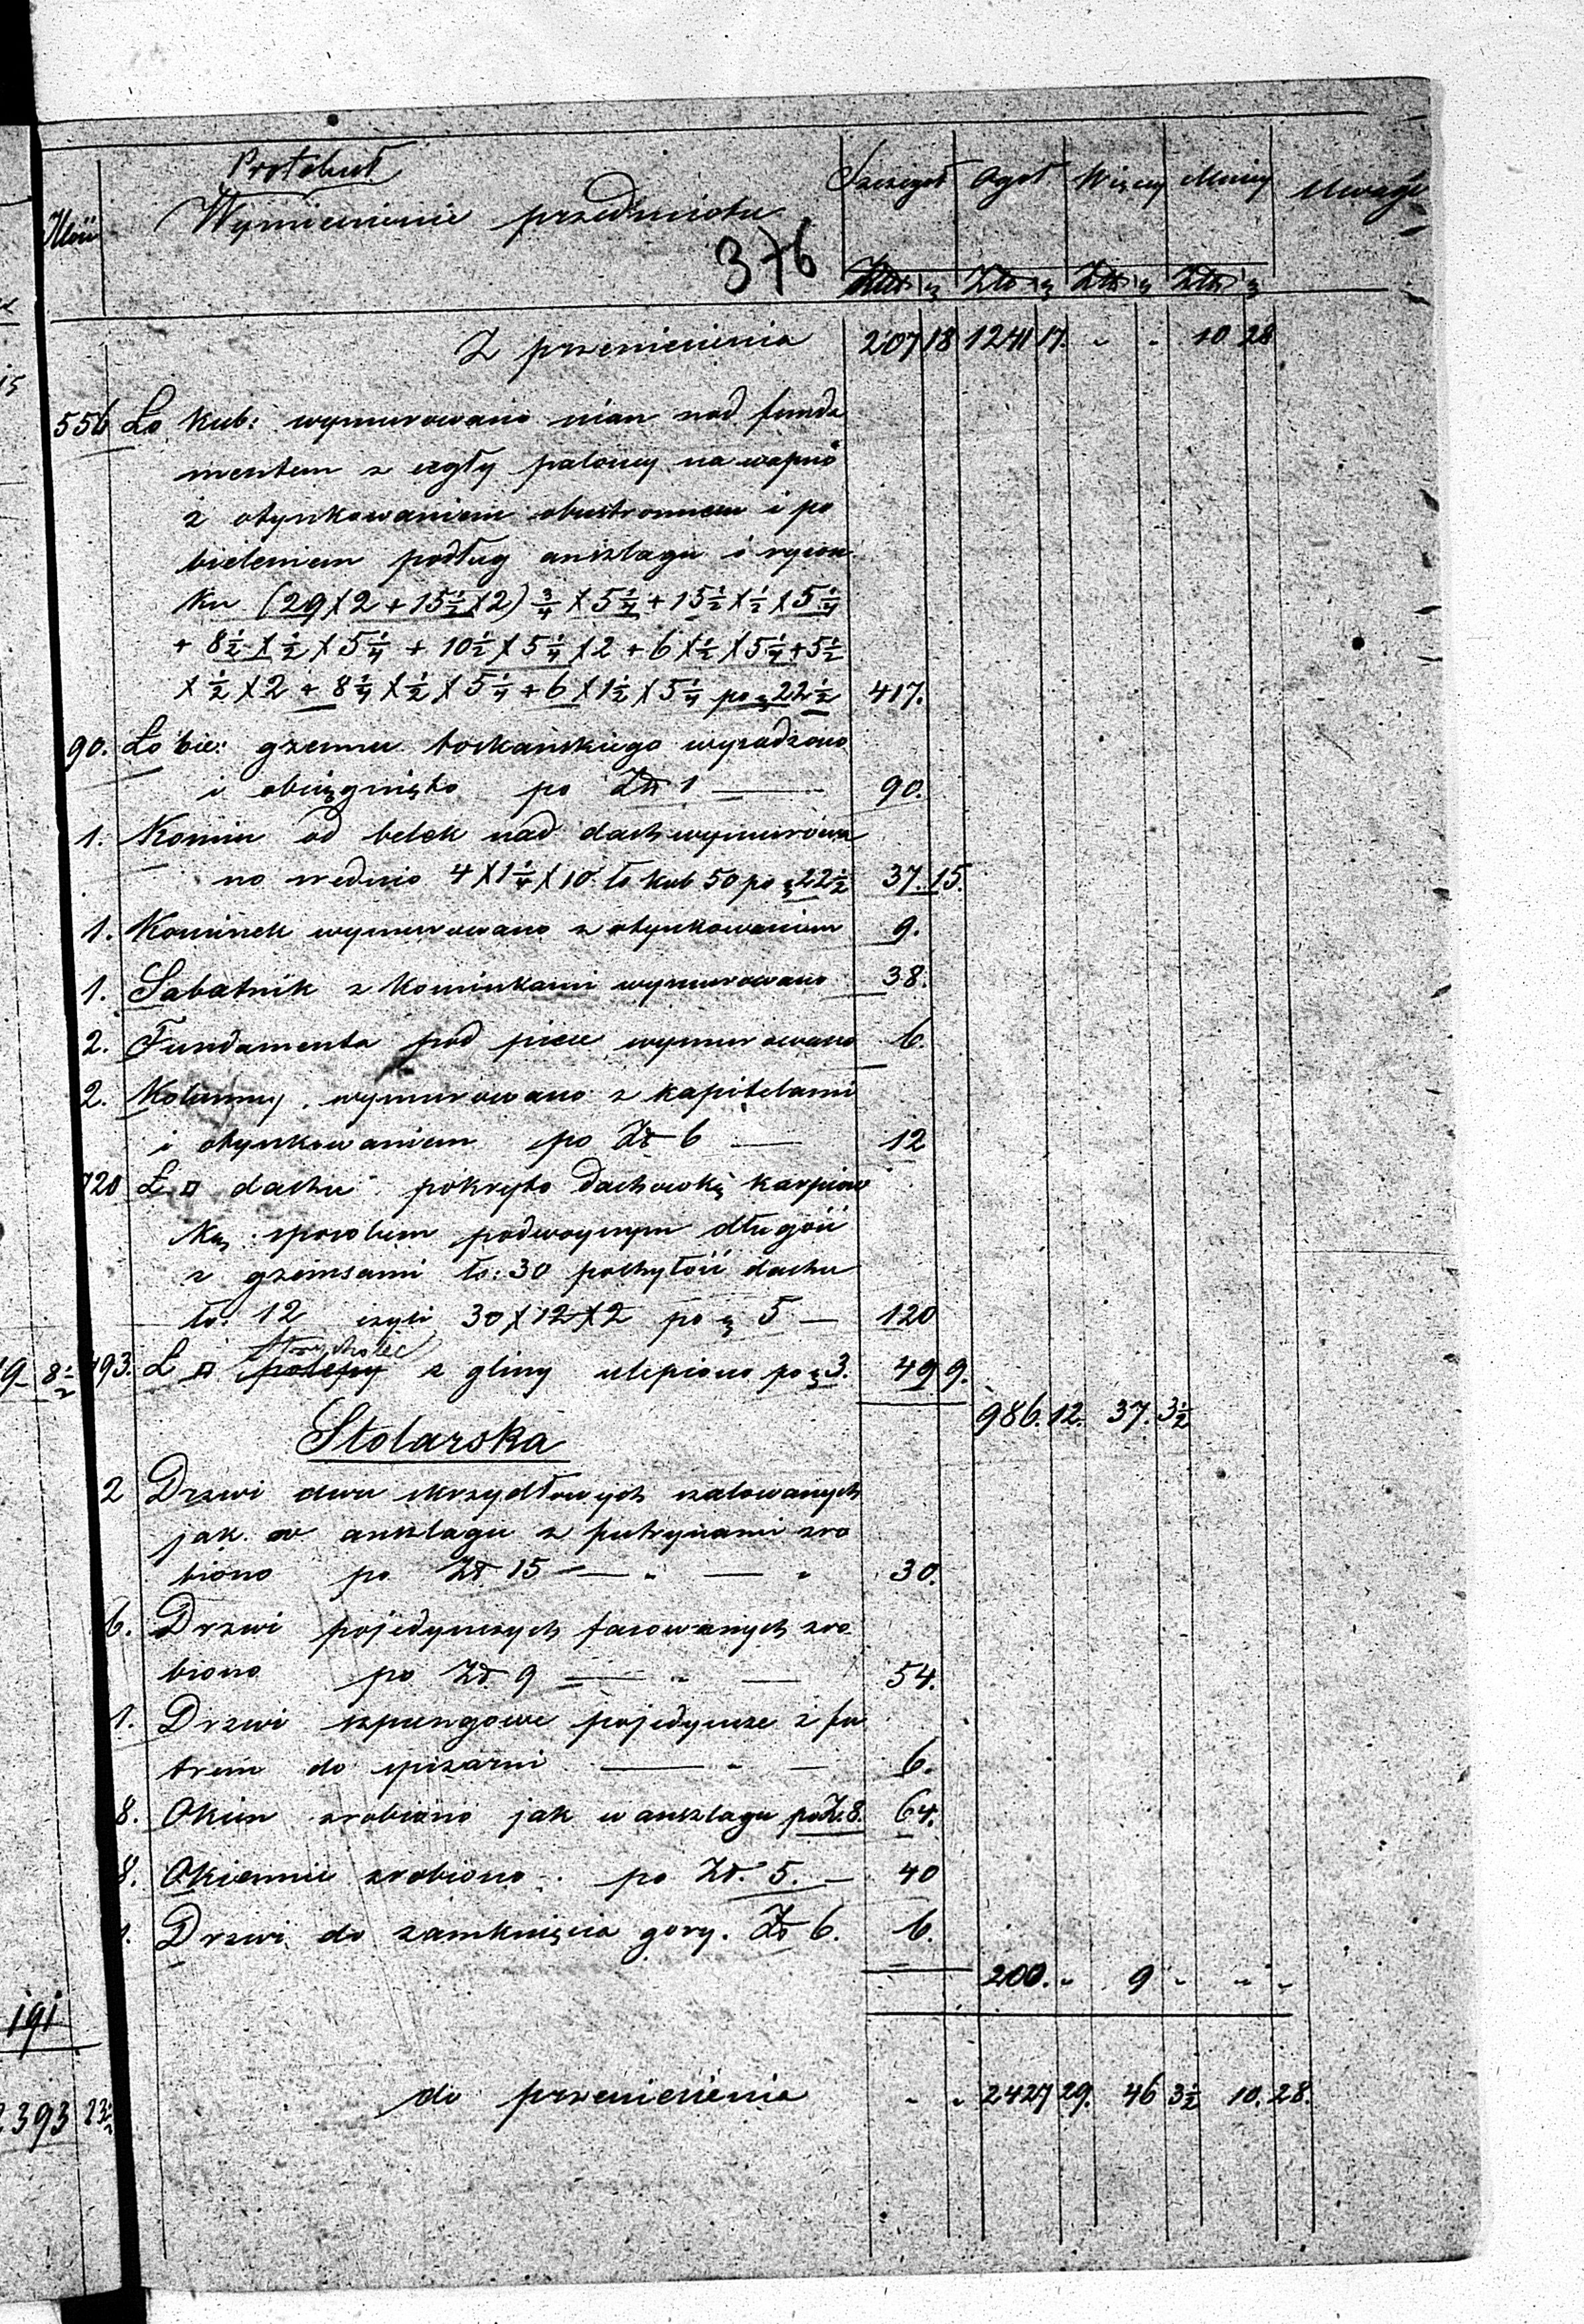 Protokuł
Ilość Wymienienie przedmiotu Szczegół Ogół Więcej Mniej Uwagi
376
Złt g Złt g Złt g Złt g
Z przeniesienia 207 18 1241 17. " " 10 28
556 Ło kub: wymurowano ścian nad funda
mentem z cegły paloney na wapno
z otynkowaniem obustronnem i po
bieleniem podług anszlagu i rysun
ku (29 X 2 + 15 1/2 X 2) 3/4 X 5 1/4 + 15 1/2 X 1/2 X 5 1/4
+ 8 1/2 X 1/2 X 5 1/4 + 10 1/2 X 5 1/4 X 2 + 6 X 1/2 X 5 1/4 + 5 1/2
X 1/2 X 2 + 8 1/4 X 1/2 X 5 1/4 + 6 X 1 1/2 X 5 1/4 po g 22 1/2 417.
90. Ło bie: gzemsu toskańskiego wysadzono
i obciągnięto po Złt 1 — 90.
1. Komin od belek nad dach wymurowa
no średnio 4 X 1 1/4 X 10. ło kub 50 po g 22 1/2 37. 15.
1. Kominek wymurowano z otynkowaniem 9.
1. Sabatnik z kominkami wymurowano 38.
2. Fundamenta pod piece wymurowano 6.
2. Kolumny wymurowano z kapitelami
i otynkowaniem po Zł 6 — 12
720 Ł □ dachu pokryto dachowką karpiow
ką sposobem podwoynym długość
z gzemsami ło: 30 pochyłość dachu
ło: 12 czyli 30 X 12 X 2 po g 5 — 120
19 8 1/2 493. Ł □ polepy z gliny ulepiono po g 3. 49 9.
986. 12. 37. 3 1/2
Stolarska
2 Drzwi dwu skrzydłowych szalowanych
jak w anszlagu z futrynami zro
biono po Zł. 15 — " — " 30.
6. Drzwi pojedynczych fasowanych zro
biono po Zł 9 — " — 54.
1. Drzwi szpungowe pojedyncze z fu
trem do spiżarni — " — 6.
8. Okien zrobiono jak w anszlagu po Z. 8. 64.
8. Okiennic zrobiono po Zł. 5. — 40
1. Drzwi do zamknięcia gory. Zł 6. 6.
200. " 9 " " "
191
do przeniesienia " " 2427 29. 46 3 1/2 10. 28.
2393 23 1/2